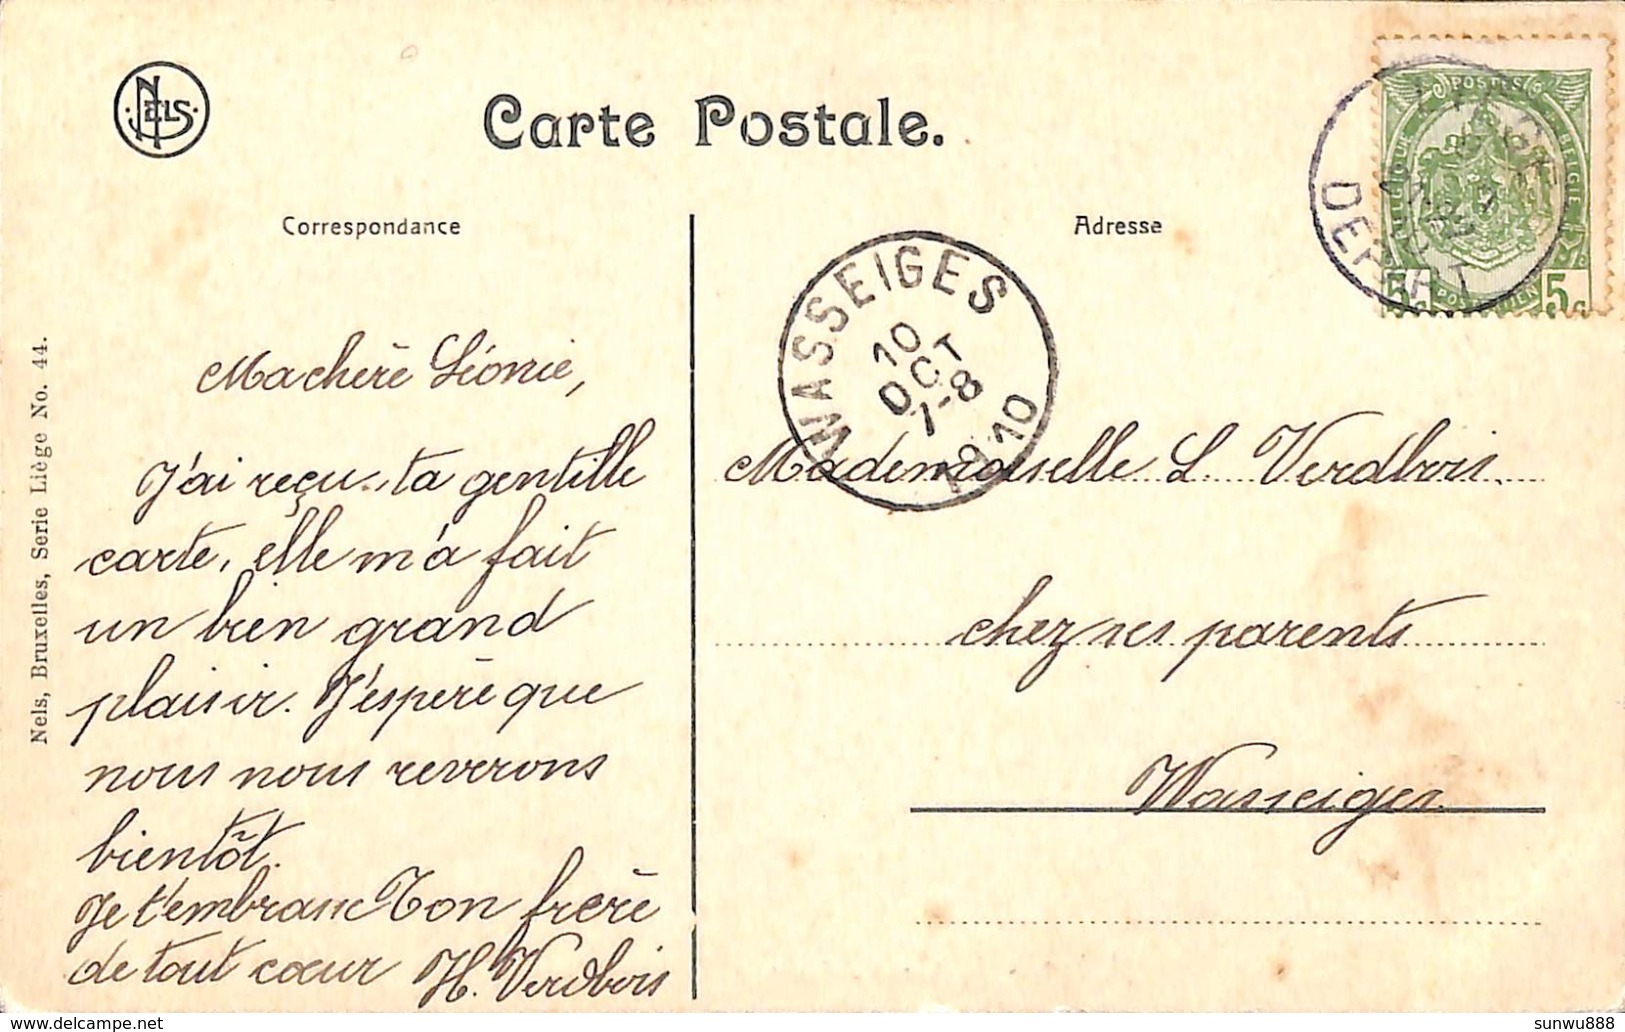 NELS
Carte Postale.
Correspondance
Adresse
POSTES
BELGIQUE
BELGIE
POSTERIJEN
5c
5c
DEPART
WASSEIGES
10
OCT
7-8
1910
Nels, Bruxelles, Serie Liège No. 44.
Machère Léonie,
J'ai reçu ta gentille
carte, elle m'a fait
un bien grand
plaisir. J'espère que
nous nous reverons
bientôt.
Je t'embrasse Ton frère
de tout cœur H. Verdbois
Mademoiselle L. Verdbois.
chez ses parents
Wasseiges.
delcampe.net
sunwu888